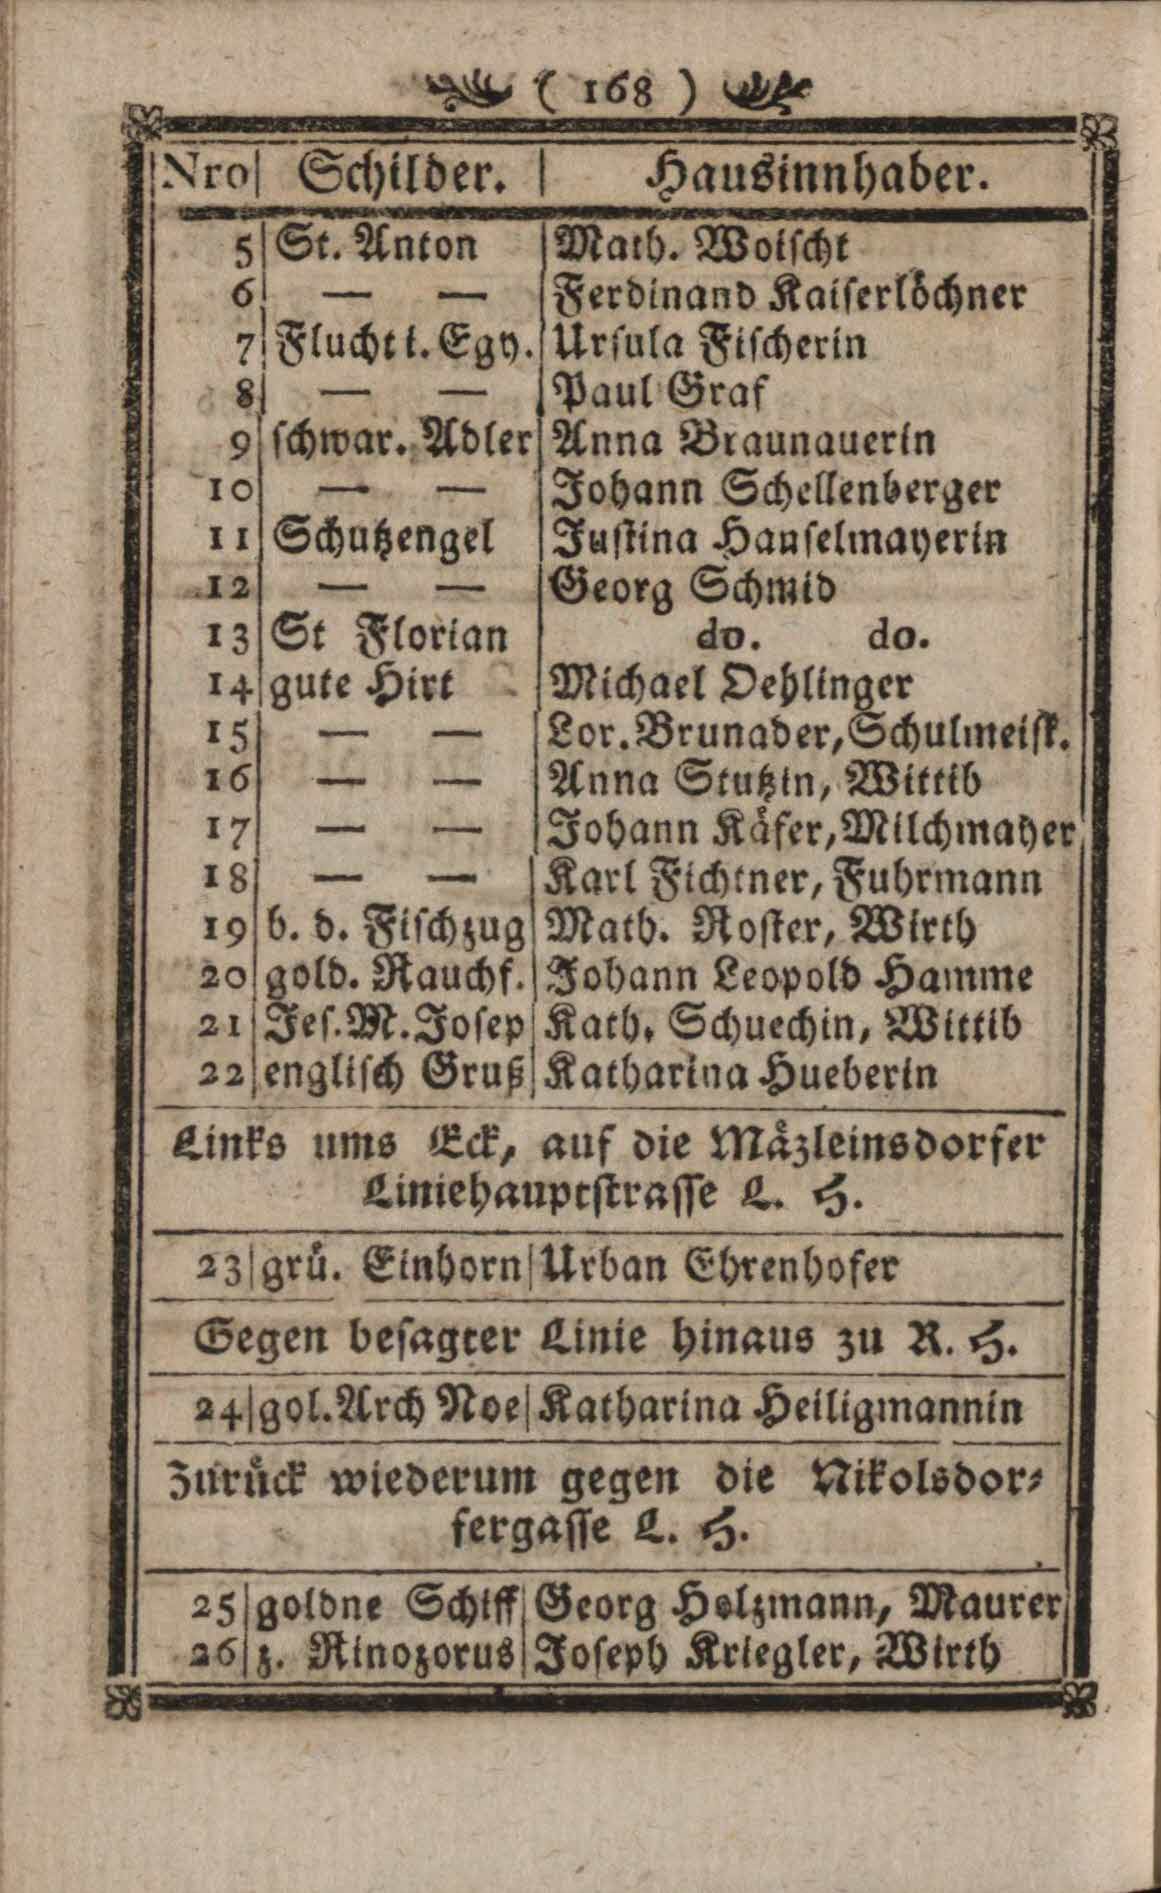 ( 168 )
Nro Schilder. Hausinnhaber.
5 St. Anton Math. Woischt
6 — — Ferdinand Kaiserlöchner
7 Flucht i. Egy. Ursula Fischerin
8 — — Paul Graf
9 schwar. Adler Anna Braunauerin
10 — — Johann Schellenberger
11 Schutzengel Justina Hauselmayerin
12 — — Georg Schmid
13 St Florian do. do.
14 gute Hirt Michael Oehlinger
15 — — Lor. Brunader, Schulmeist.
16 — — Anna Stutzin, Wittib
17 — — Johann Käfer, Milchmayer
18 — — Karl Fichtner, Fuhrmann
19 b. d. Fischzug Math. Roster, Wirth
20 gold. Rauchf. Johann Leopold Hamme
21 Jes. M. Josep Kath. Schuechin, Wittib
22 englisch Gruß Katharina Hueberin
Links ums Eck, auf die Mäzleinsdorfer
Liniehauptstrasse L. H.
23 grü. Einhorn Urban Ehrenhofer
Gegen besagter Linie hinaus zu R. H.
24 gol. Arch Noe Katharina Heiligmannin
Zurück wiederum gegen die Nikolsdor-
fergasse L. H.
25 goldne Schiff Georg Holzmann, Maurer
26 z. Rinozorus Joseph Kriegler, Wirth